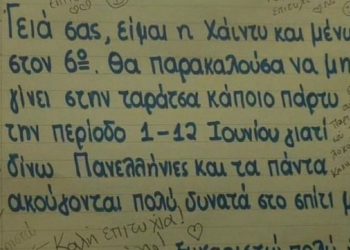 Γειά σας, είμαι η Χάιντυ και μένω
στον 6ο. Θα παρακαλούσα να μη
γίνει στην ταράτσα κάποιο πάρτυ
την περίοδο 1-12 Ιουνίου γιατί
δίνω Πανελλήνιες και τα πάντα
ακούγονται πολύ δυνατά στο σπίτι μ
Καλή επιτυχία!